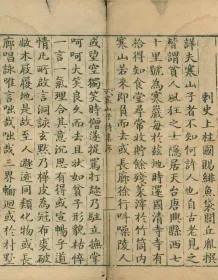 刺史上柱國賜緋魚袋閭丘胤撰
詳夫寒山子者不知何許人也自古老見之
皆謂貧人風狂之士隱居天台唐興縣西七
十里號為寒巖每於茲地時還國清寺寺有
拾得知食堂尋常收貯餘殘菜滓於竹筒內
寒山若來即負而去或長廊徐行叫噪陵人
寒山子詩集序
或望空獨笑時僧遂捉罵打趁乃駐立撫掌
呵呵大笑良久而去且狀如貧子形貌枯悴
一言一氣理合其意沉思有得或宣暢乎道
情凡所啟言洞該玄默乃樺皮為冠布裘破
敝木屐履地是故至人遯跡同類化物或長
廊唱詠唯言咄哉咄哉三界輪迴或於村墅